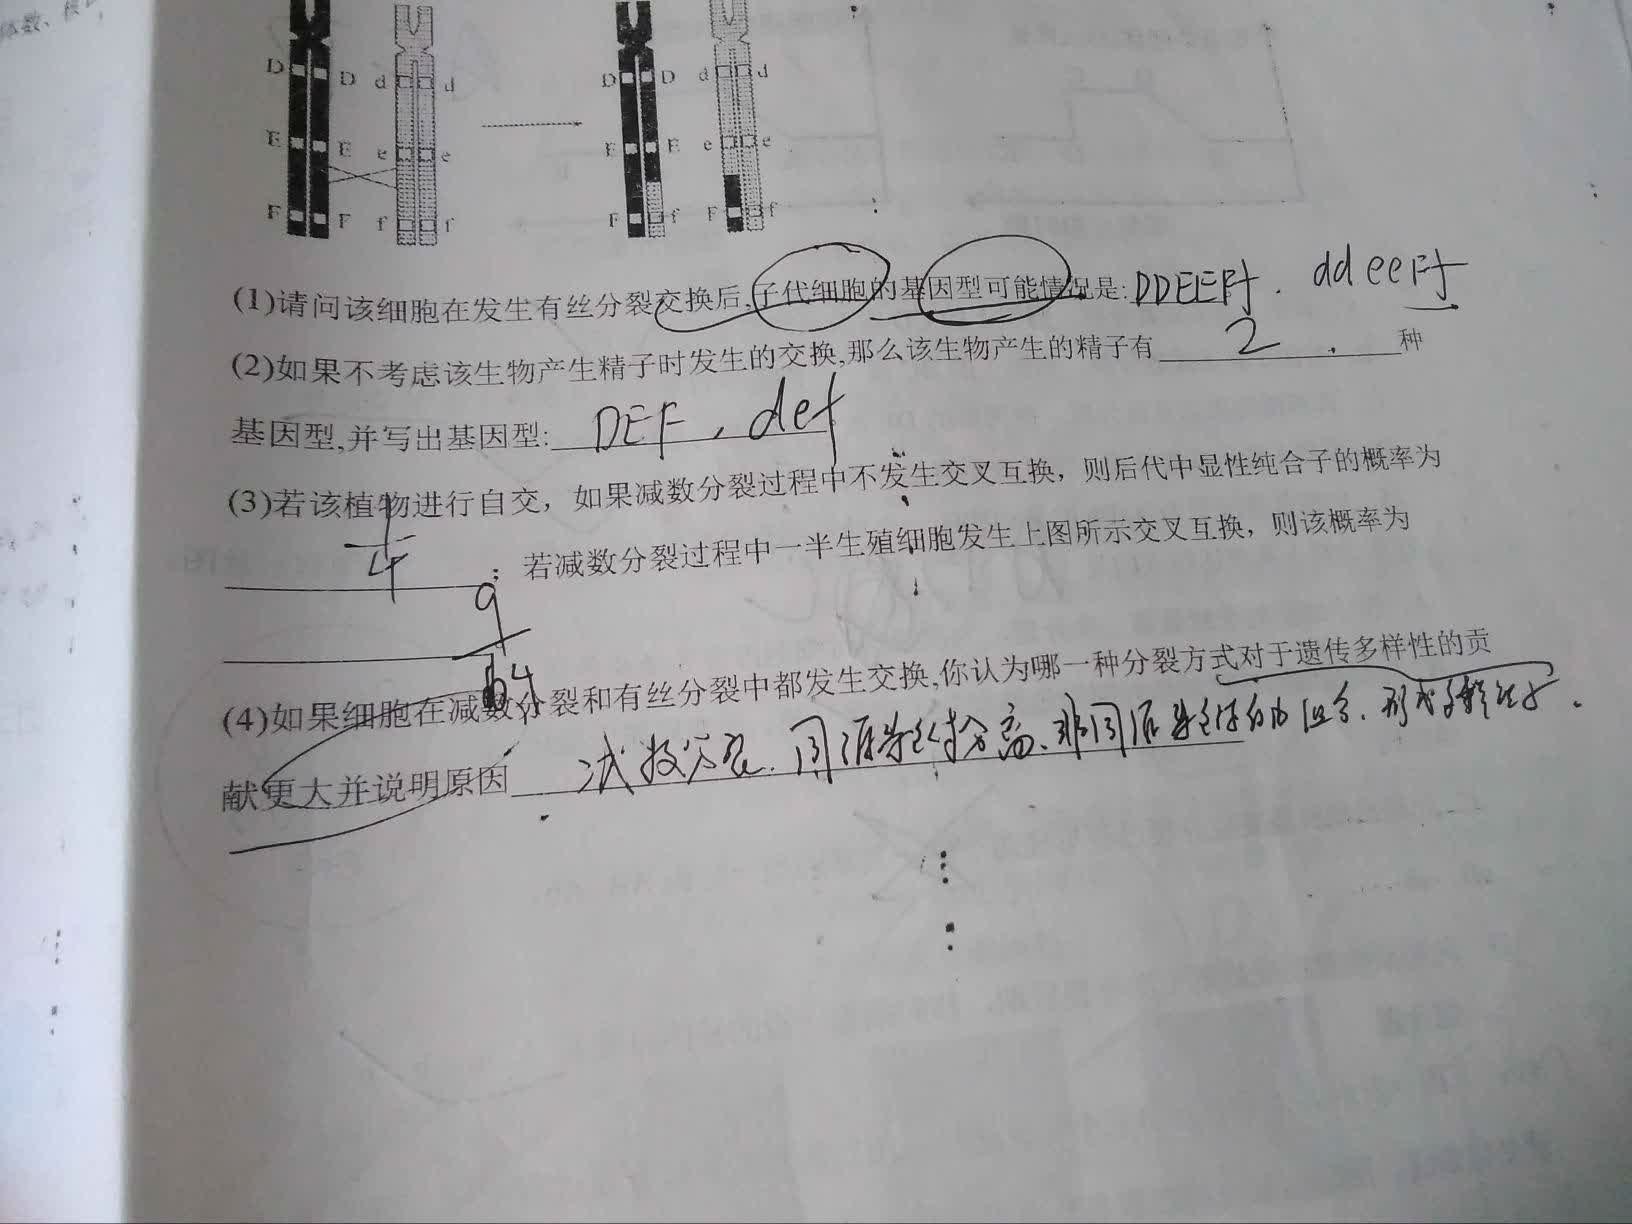 体数、
D D d d D D d d
E E e e E E e e
F F f f F f F f
(1)请问该细胞在发生有丝分裂交换后,子代细胞的基因型可能情况是: DDEEFf . ddeeFf
(2)如果不考虑该生物产生精子时发生的交换,那么该生物产生的精子有 2 种
基因型,并写出基因型: DEF , def
(3)若该植物进行自交，如果减数分裂过程中不发生交叉互换，则后代中显性纯合子的概率为
1/4 ；若减数分裂过程中一半生殖细胞发生上图所示交叉互换，则该概率为
9/64
(4)如果细胞在减数分裂和有丝分裂中都发生交换,你认为哪一种分裂方式对于遗传多样性的贡
献更大并说明原因 减数分裂. 同源染色体分离、非同源染色体自由组合.